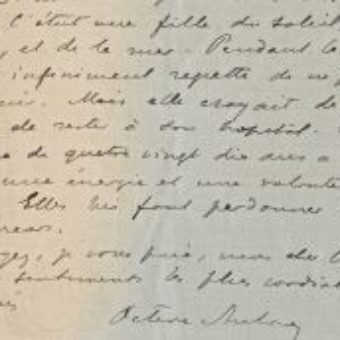 C'était une fille du soleil
et de la mer. Pendant la
infiniment regretté de ne p
Mais elle croyait de
de rester à son hopital.
de quatre vingt dix ans a
une énergie et une volonté
Elles lui font pardonner
je vous prie, mon cher
sentiments les plus cordia
Octave Aubry